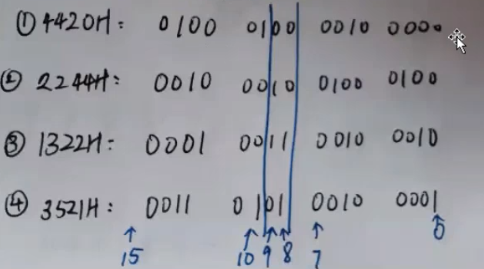 ① 4420H: 0100 0100 0010 0000
② 2244H: 0010 0010 0100 0100
③ 1322H: 0001 0011 0010 0010
④ 3521H: 0011 0101 0010 0001
15 10 9 8 7 0